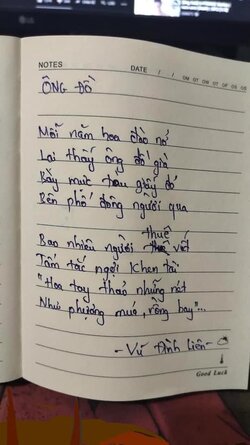 NOTES DATE / /
ÔNG ĐỒ
Mỗi năm hoa đào nở
Lại thấy ông đồ già
Bày mực tàu giấy đỏ
Bên phố đông người qua
thuê
Bao nhiêu người viết
Tấm tắc ngợi khen tài
"Hoa tay thảo những nét
Như phượng múa, rồng bay"...
- Vũ Đình Liên -
Good Luck
LG